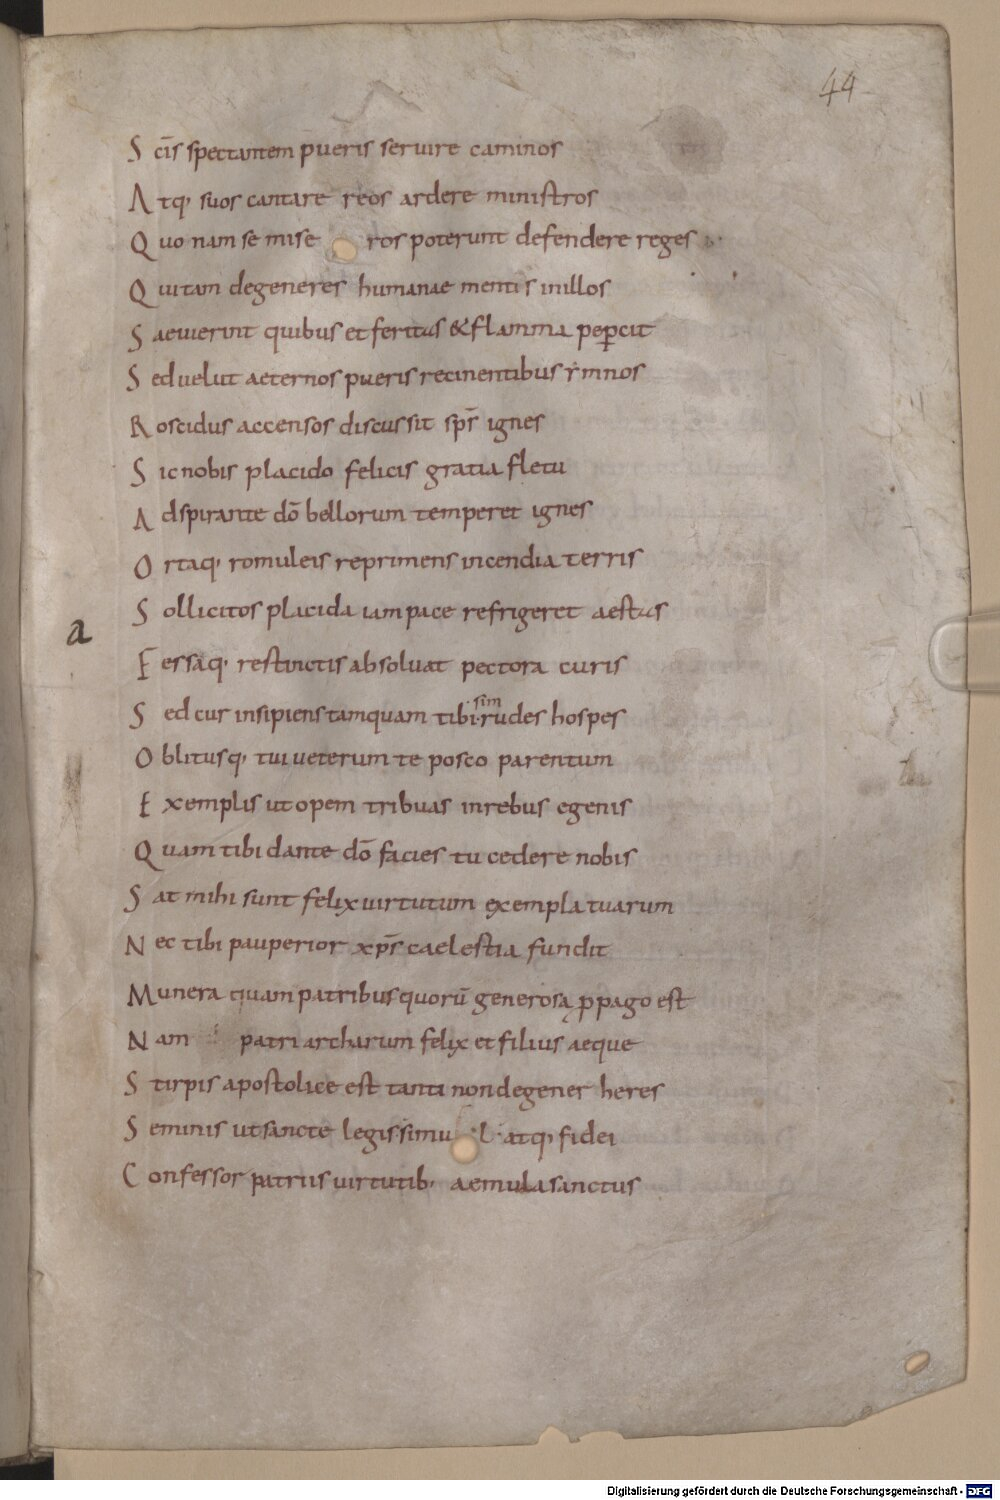 44
S cīs spectantem pueris seruire caminos
A tq; suos cantare reos ardere ministros
Q uo nam se mise ros poterunt defendere reges
Q ui tam degeneres humanae mentis inillos
S aeuierint quibus et feritas & flamma peꝑcit
S ed uelut aeternos pueris recinentibus ẏmnos
R oscidus accensos discussit sp̄s ignes
S ic nobis placido felicis gratia fletu
A dspirante dō bellorum temperet ignes
O rtaq; romuleis reprimens incendia terris
S ollicitos placida iam pace refrigeret aestus
a
F essaq; restinctis absoluat pectora curis
S ed cur insipiens tamquam tibi sim rudes hospes
O blitusq; tui ueterum te posco parentum
E xemplis ut opem tribuas inrebus egenis
Q uam tibi dante dō facies tu cedere nobis
S at mihi sunt felix uirtutum exempla tuarum
N ec tibi pauperior xp̄s caelestia fundit
M unera quam patribus quorū generosa ꝓpago est
N am patriarcharum felix et filius aeque
S tirpis apostolice est tanti non degener heres
S eminis ut sancte legis simul atq; fidei
C onfessor patriis uirtutib; aemula sanctus
Digitalisierung gefördert durch die Deutsche Forschungsgemeinschaft - DFG